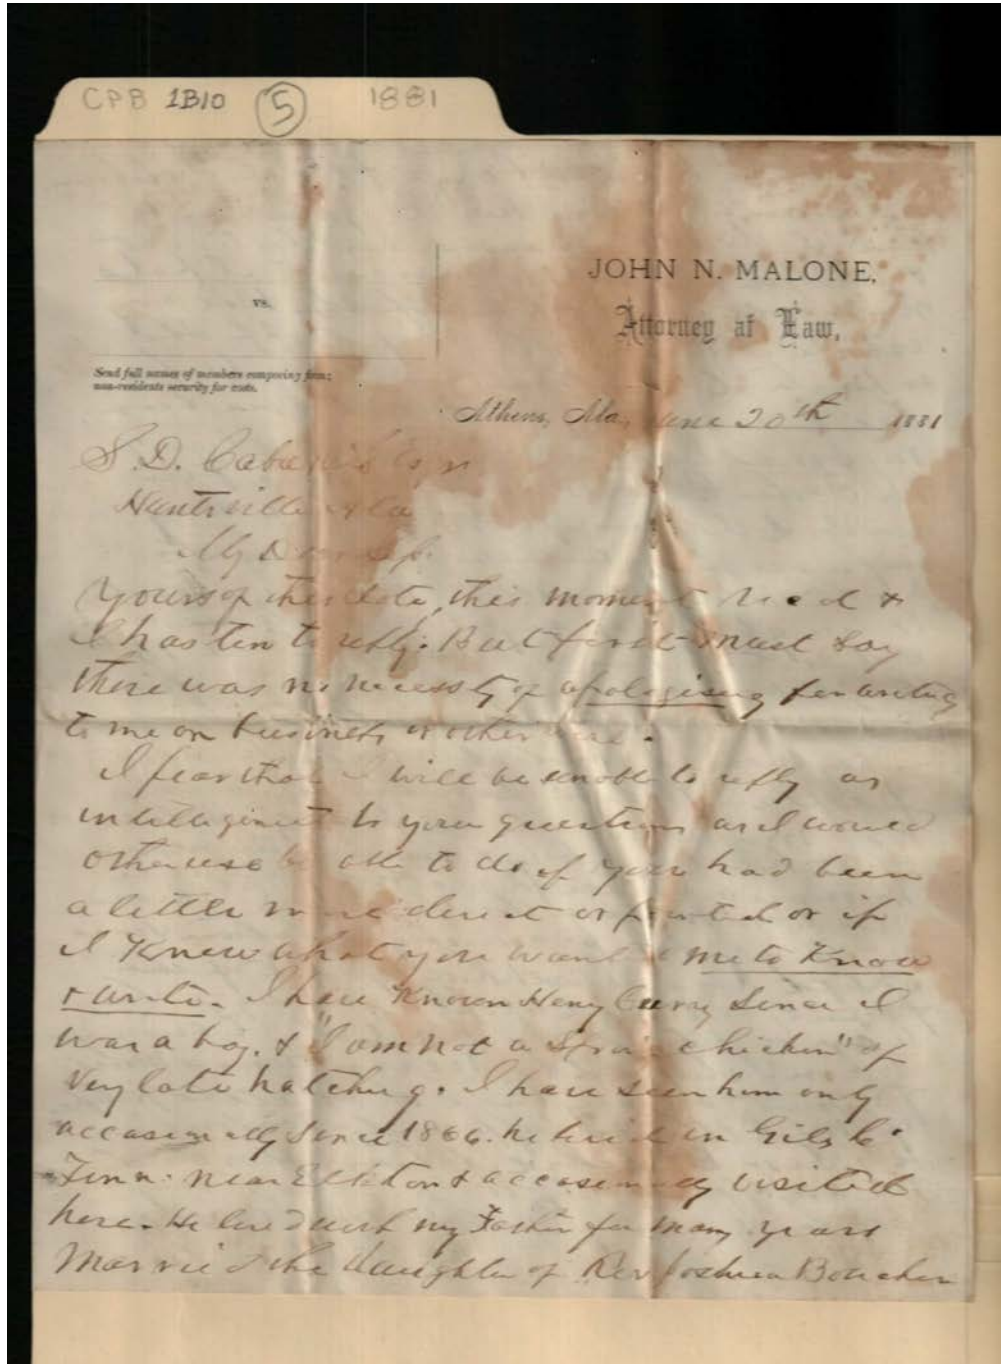 CPB 1B10 5 1881
JOHN N. MALONE,
vs.
Attorney at Law,
Send full names of members composing firm;
non-residents security for costs.
Athens, Ala, June 20th 1881
S. D. Cabaniss Esqr
Huntsville Ala
My Dear Sir.
Yours of this date, this moment rec d &
I hasten to reply. But first must say
there was no necessity of apologising for writing
to me on business or otherwise.
I fear that I will be unable to reply as
intelligent to your questions as I would
otherwise be able to do if you had been
a little more direct or pointed or if
I Knew what you want me to Know
& write. I have Known Henry Curry Since I
was a boy. & "I am not a Spring chicken" of
Very late hatching. I have seen him only
occasionally Since 1866. he lived in Giles Co
Tenn. near Elkton & occasionally visited
here. He lived with my Father for many years
Married the daughter of Rev Joshua Boucher